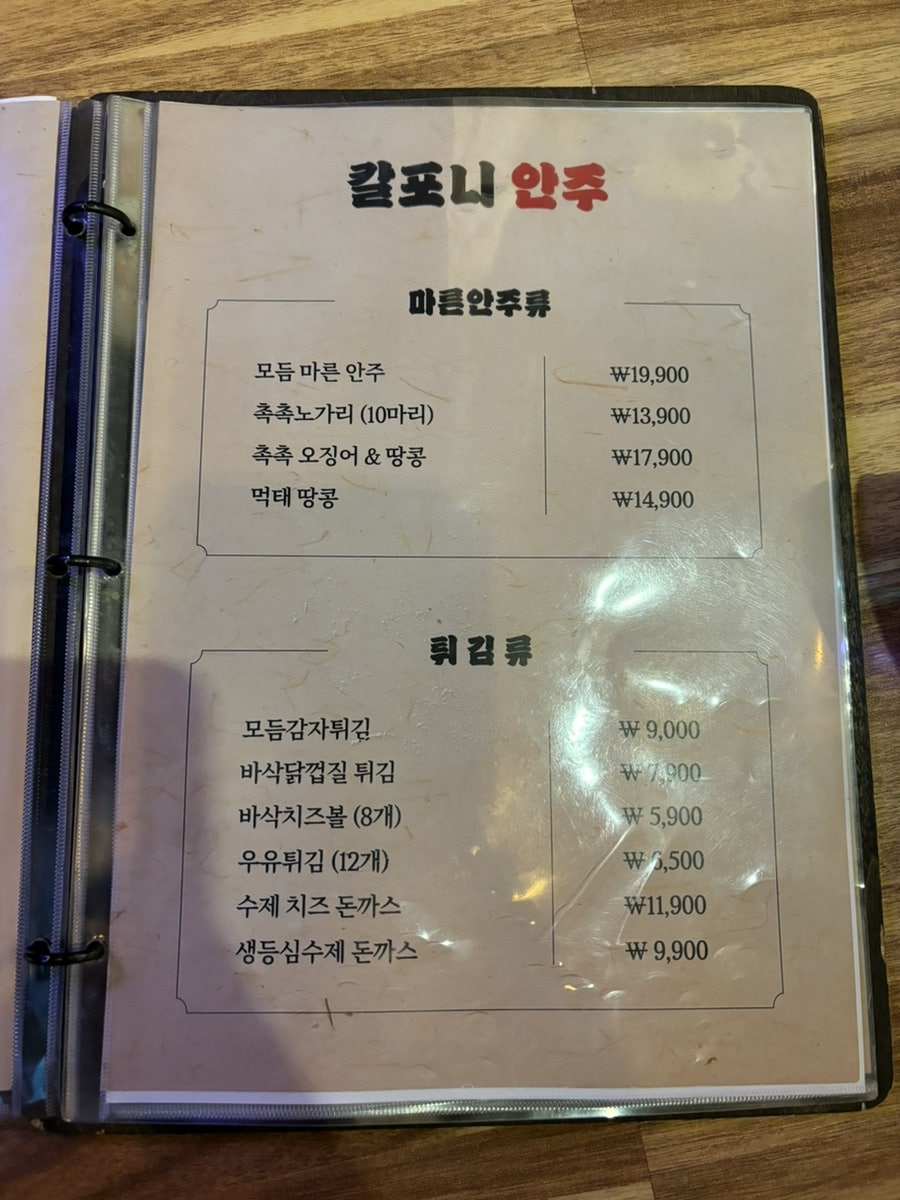 칼포니 안주
마른안주류
모듬 마른 안주 ₩19,900
촉촉노가리 (10마리) ₩13,900
촉촉 오징어 & 땅콩 ₩17,900
먹태 땅콩 ₩14,900
튀김류
모듬감자튀김 ₩ 9,000
바삭닭껍질 튀김 ₩ 7,900
바삭치즈볼 (8개) ₩ 5,900
우유튀김 (12개) ₩ 6,500
수제 치즈 돈까스 ₩11,900
생등심수제 돈까스 ₩ 9,900